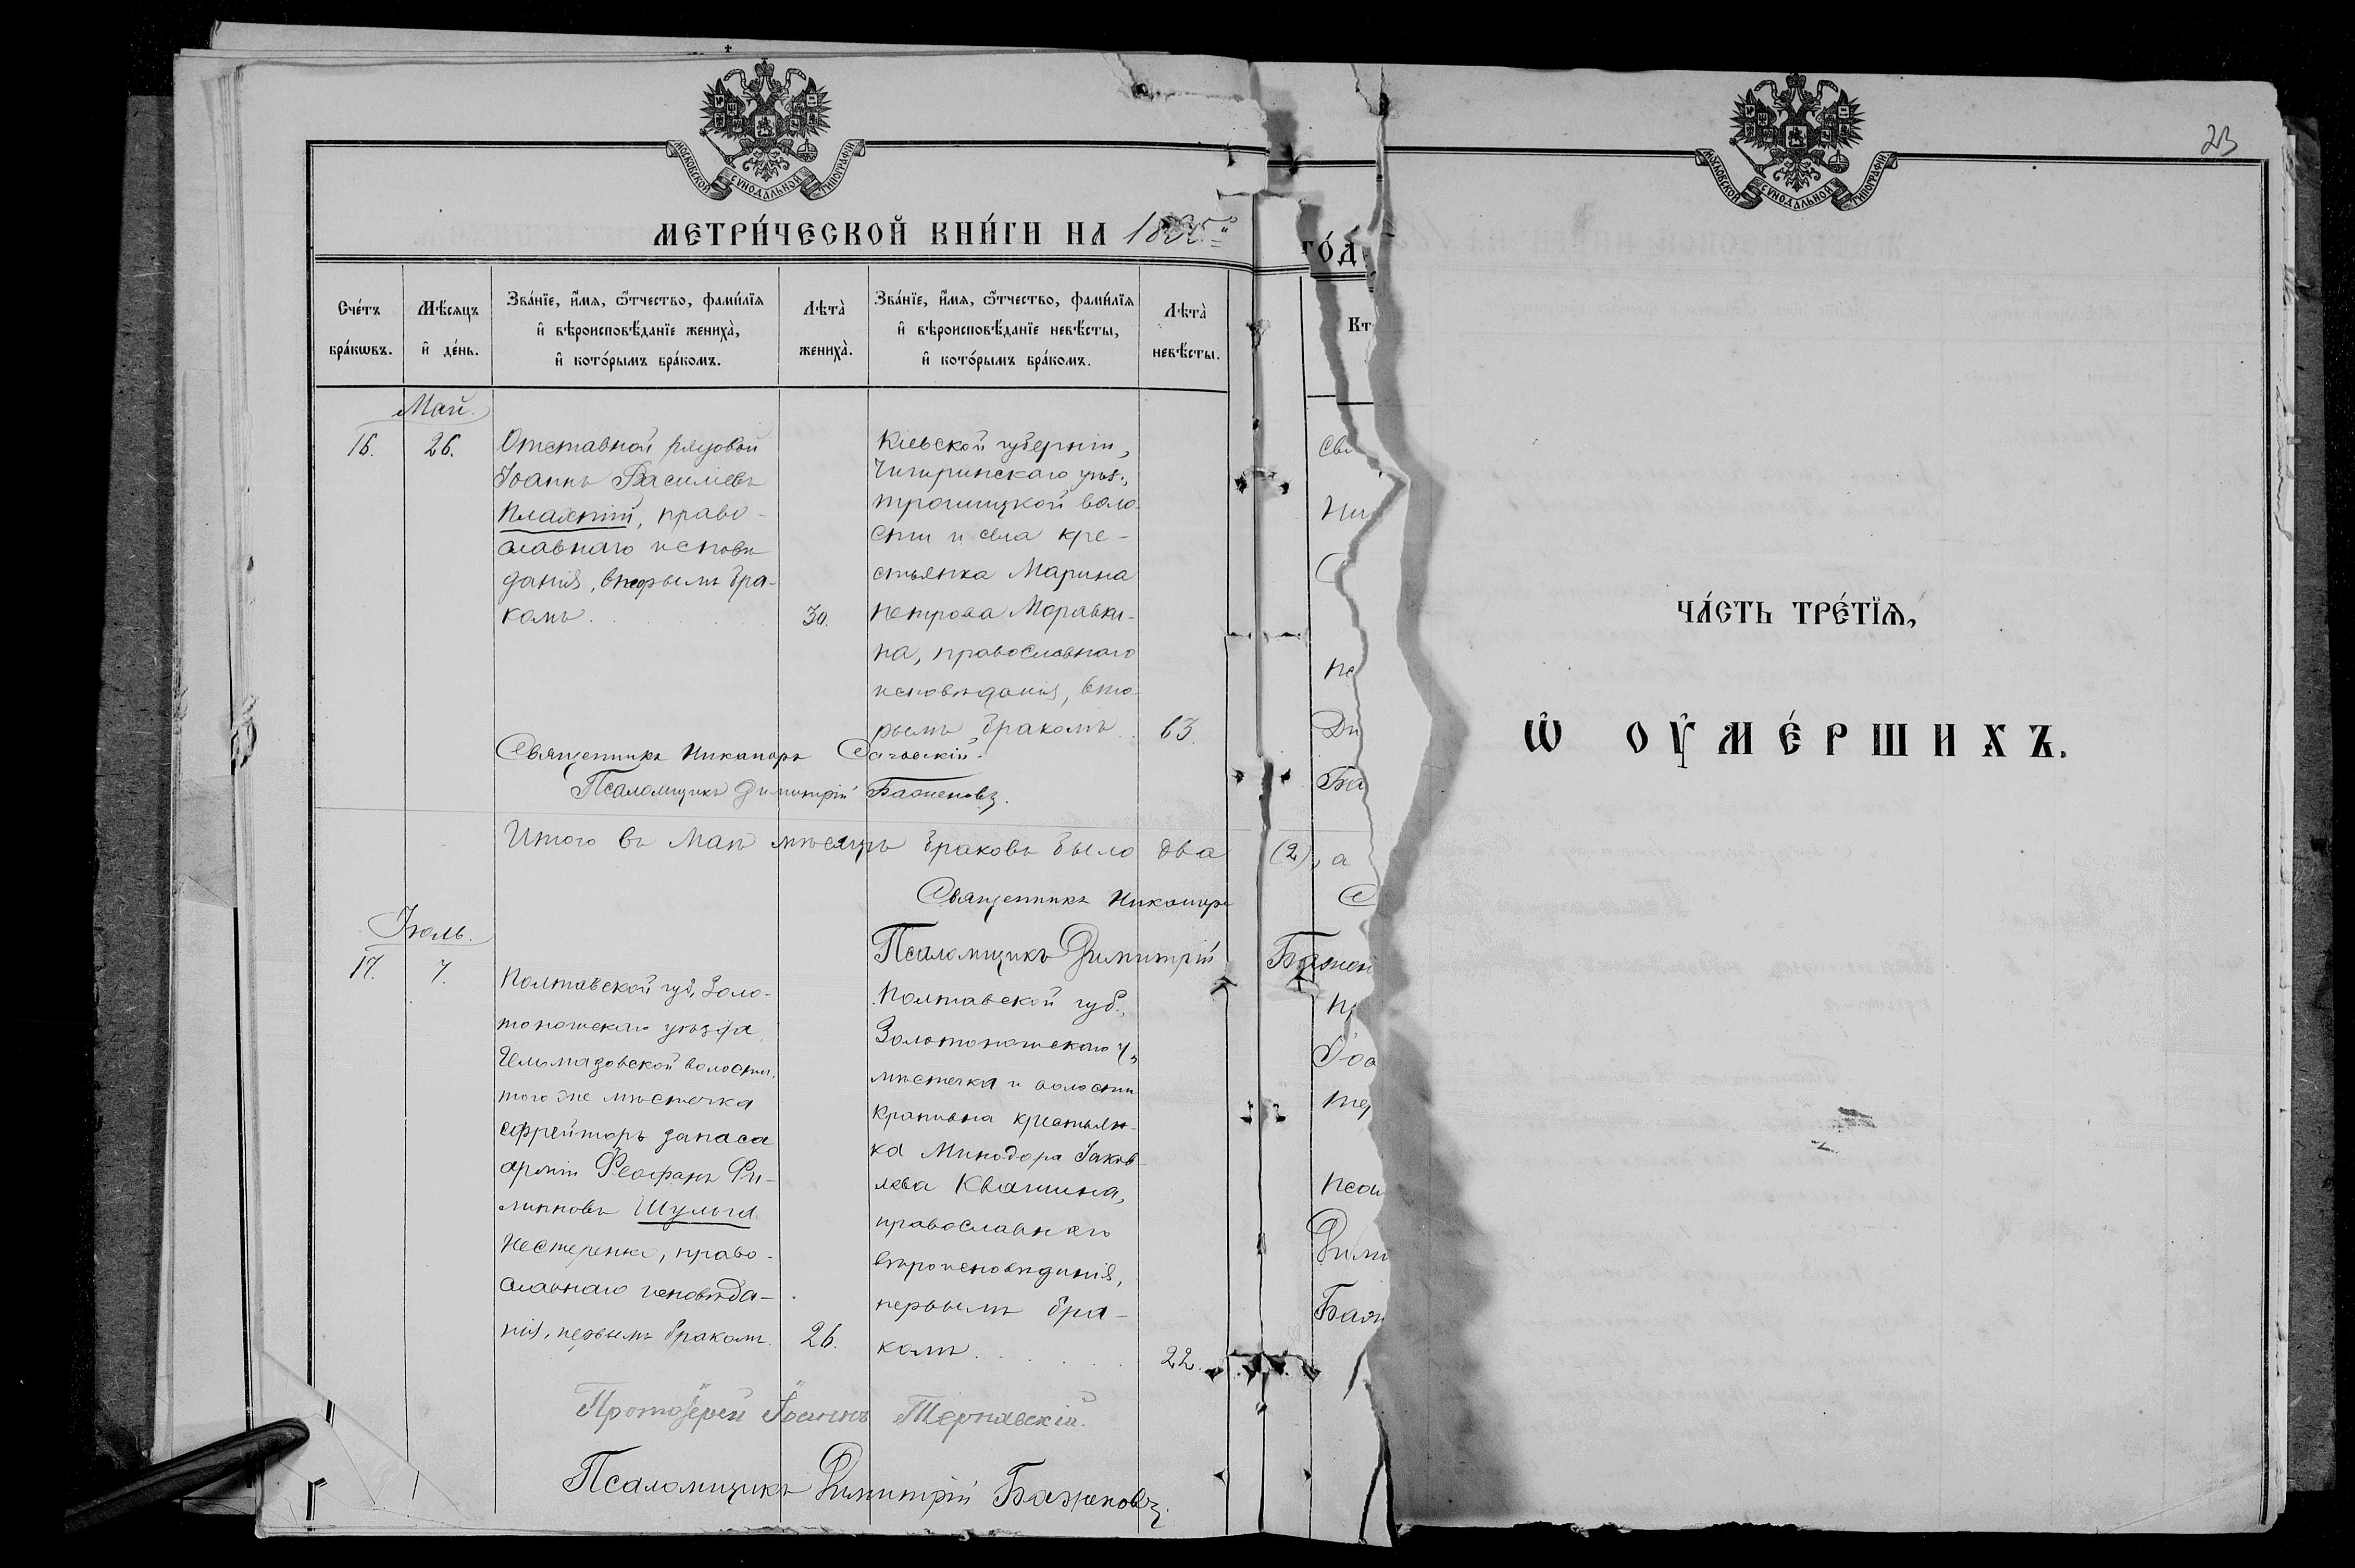 МОСКОВСКОЙ СѴНОДАЛЬНОЙ ТИПОГРАФІИ
МЕТРИ́ЧЕСКОЙ КНИ́ГИ НА 18
го́д
Сче́тъ бра́кѡвъ.
Мѣ́сяцъ и҆ де́нь.
Зва́нїе, и҆́мѧ, ѻ҆́тчество, фами́лїѧ
и҆ вѣроисповѣ́данїе жениха̀,
и҆ кото́рымъ бра́комъ.
Лѣта̀ жениха̀.
Зва́нїе, и҆́мѧ, ѻ҆́тчество, фами́лїѧ
и҆ вѣроисповѣ́данїе невѣ́сты,
и҆ кото́рымъ бра́комъ.
Лѣта̀ невѣ́сты.
Кт
Май.
16.
26.
Отставной рядовой
Іоаннъ Василіевъ
право-
славнаго исповѣ
данія, вторымъ бра-
комъ
30.
Кіевской губерніи,
Чигиринскаго уѣз.,
воло-
сти и села кре-
стьянка Марина
Петрова Моравки-
на, православнаго
исповѣданія, вто-
рымъ бракомъ
63.
Священникъ Никаноръ
Псаломщикъ Димитрій Баженовъ.
Итого въ Маѣ мѣсяцѣ браковъ было два (2), а
Священникъ Никаноръ С
Псаломщикъ Димитрій Бажен
Іюль.
17.
7.
Полтавской губ. Золо-
тоношскаго уѣзда,
Гельмязовской волости,
того же мѣстечка
ефрейторъ запаса
арміи Ѳеофанъ Фи-
липповъ Шульга
Нестеренко, право-
славнаго исповѣда-
нія, первымъ бракомъ.
26.
Полтавской губ.,
Золотоношскаго у,
мѣстечка и волости
Крапивна крестьян-
ка Минодора Іаков-
лева Квашина,
православнаго
вѣроисповѣданія,
первымъ бра-
комъ
22.
Протоіерей Іоаннъ Терновскій.
Псаломщикъ Димитрій Баженовъ.
Ни
Ди
Ба
Іоа
Баж
МОСКОВСКОЙ СѴНОДАЛЬНОЙ ТИПОГРАФІИ
23
ЧА́СТЬ ТРЕ́ТЇѦ,
Ѡ҆ ОУ҆МЕ́РШИХЪ.